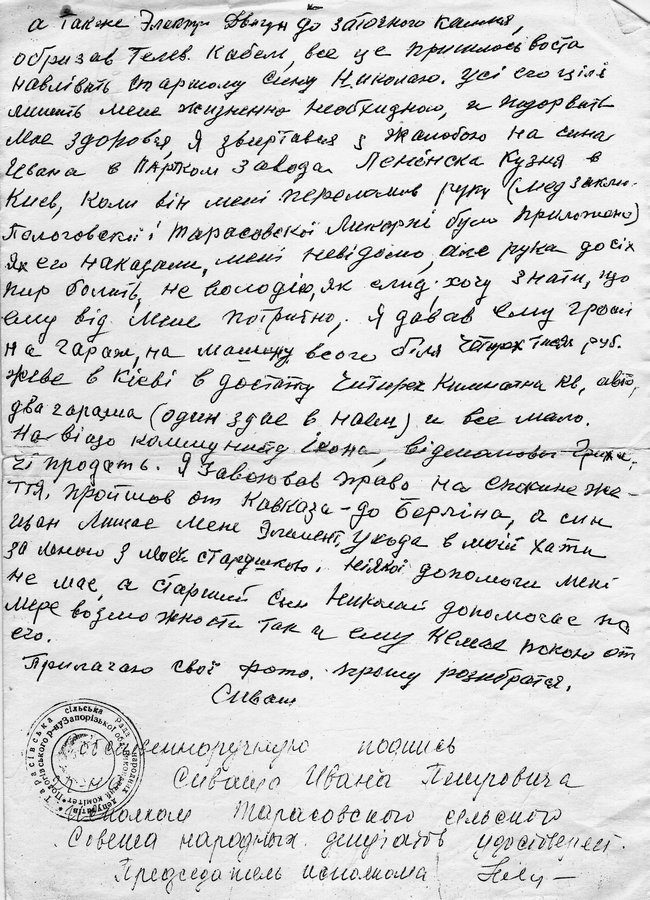 а также Электро Двигун до заточного камня,
обризав Телев. Кабель, все це пришлось воста
навлівать старшому сину Николаю. усі его цілі
лишить мене жизненно необхидного, и подорвать
мое здоровья, Я звертався з жалобою на сина
Ивана в партком завода Ленінска Кузня в
Киев, коли він мені переламав руку (мед заклю.
Пологовской і тарасовской Ликарні було приложено)
Як его наказали, мені невідомо, але рука до сіх
пир болить, не володію, як слид; хочу знати, що
ему від мене потрибно, Я давав ему гроши
на гараж, на машину всого біля четирех тисяч руб.
живе в Кієві в достатку читирех кимнатна кв, авто,
два гаража (один здае в наем) и все мало.
На віщо коммунисту ікона,
чі продать. Я завоював право на спокине жи-
ття, пройшов от Кавказа - до Берліна, а син
иван лишае мене Элемент, ухода в моїй хати
за мною з моею старушкою. ніякої допомоги мені
не мае, а старший син Николай допомогае по
мере возможности так и ему немае покою от
его.
Прилагаю свої фото. прошу розибратся.
Сиваш
Тарасівська сільська Рада народних депутатів Пологівського р-ну Запорізької обл. виконавчий комітет
собственноручную подпись
Сиваша Ивана Петровича
исполком Тарасовского сельского
Совета народных депутатов удостоверяет.
Председатель исполкома